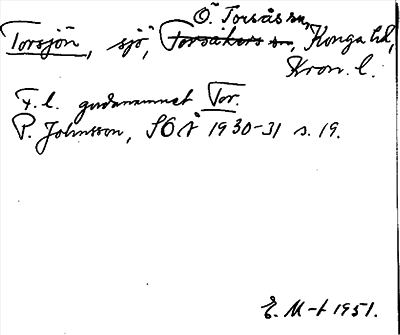 Ö. Torsås sn,
Torsjön, sjö, Torsåkers sn, Konga hd,
Kron. l.
F. l. gudanamnet Tor.
P. Johnsson, SOÅ 1930-31 s. 19.
E. M-t 1951.